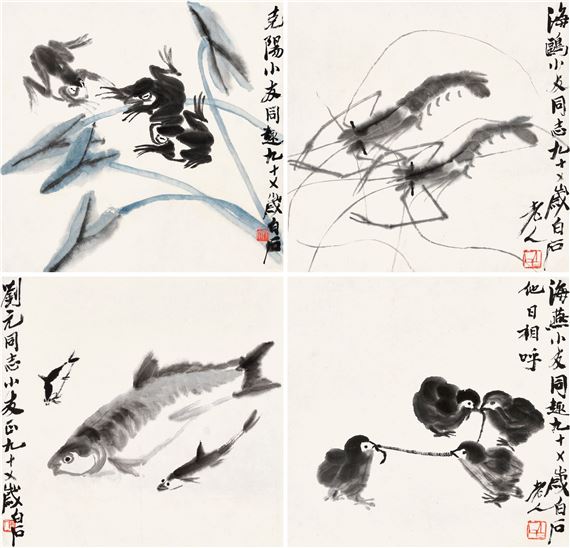 克陽小友同趣九十乂歲白石
海鷗小友同志九十乂歲白石
老人
劉元同志小友正九十乂歲白石
海燕小友同趣九十乂歲白石
老人
他日相呼